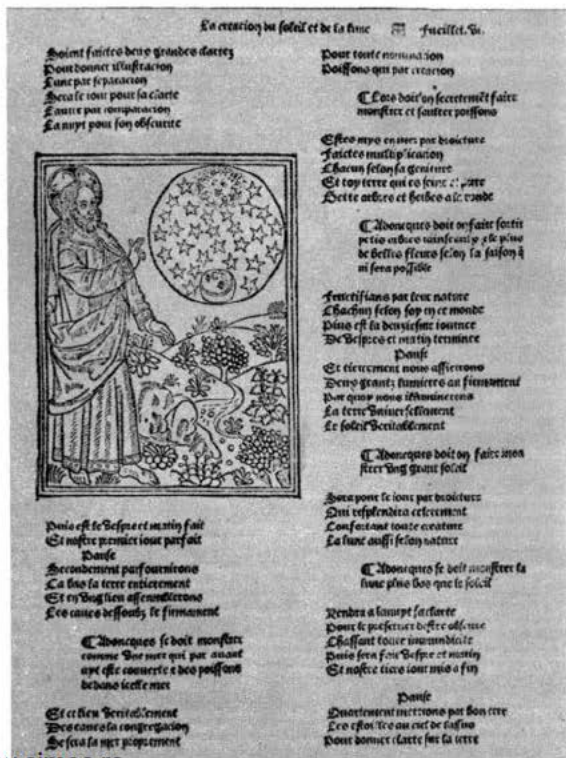 La creacion du soleil et de la lune fueillet. vi.
Soient faictes deux grandes clartez
Pour donner illustracion
Lune par separacion
Sera le iour pour sa clarte
Lautre par comparacion
La nuyt pour son obscurite
Puis est le vespre et matin fait
Et nostre premier iour parfait
Pause
Secondement parfournirons
La bas la terre entierement
Et en vng lieu assemblerons
Les eaues dessoubz le firmament
Adoncques se doit monstrer
comme vne mer qui par auant
ayt este couuerte & des poissons
dedans icelle mer
Et ce lieu veritablement
Des eaues la congregacion
Se sera la mer proprement
Pour toute nominacion
Poissons qui par creacion
Lors doit on secretemēt faire
monstrer et saulter poissons
Estes mys en mer par droicture
Faictes multiplicacion
Chacun selon sa geniture
Et toy terre qui es seine et
Gette arbres et herbes a la ronde
Adoncques doit on faire sortir
petis arbres rainseaulx & le plus
de belles fleurs selon la saison q̄
il sera possible
Fructifians par leur nature
Chachun selon soy en ce monde
Plus est la deuxiesme iournee
De vespres et matin terminee
Pause
Et tiercement nous asserrons
Deux grantz lumieres au firmament
Par quoy nous illuminerons
La terre vniuersellement
Le soleil veritablement
Adoncques doit on faire mon
strer vng grant soleil
Sera pour le iour par droicture
Qui resplendira clerement
Confortant toute creature
La lune aussi selon nature
Adoncques se doit monstrer la
lune plus bas que le soleil
Rendra a la nuyt sa clarte
Pour le preseruer destre obscure
Chassant toute immundicite
Puis sera fait vespre et matin
Et nostre tiers iour mis a fin
Pause
Quartement mettrons par bon erre
Les estoilles au ciel de lassus
Pour donner clarte sur la terre